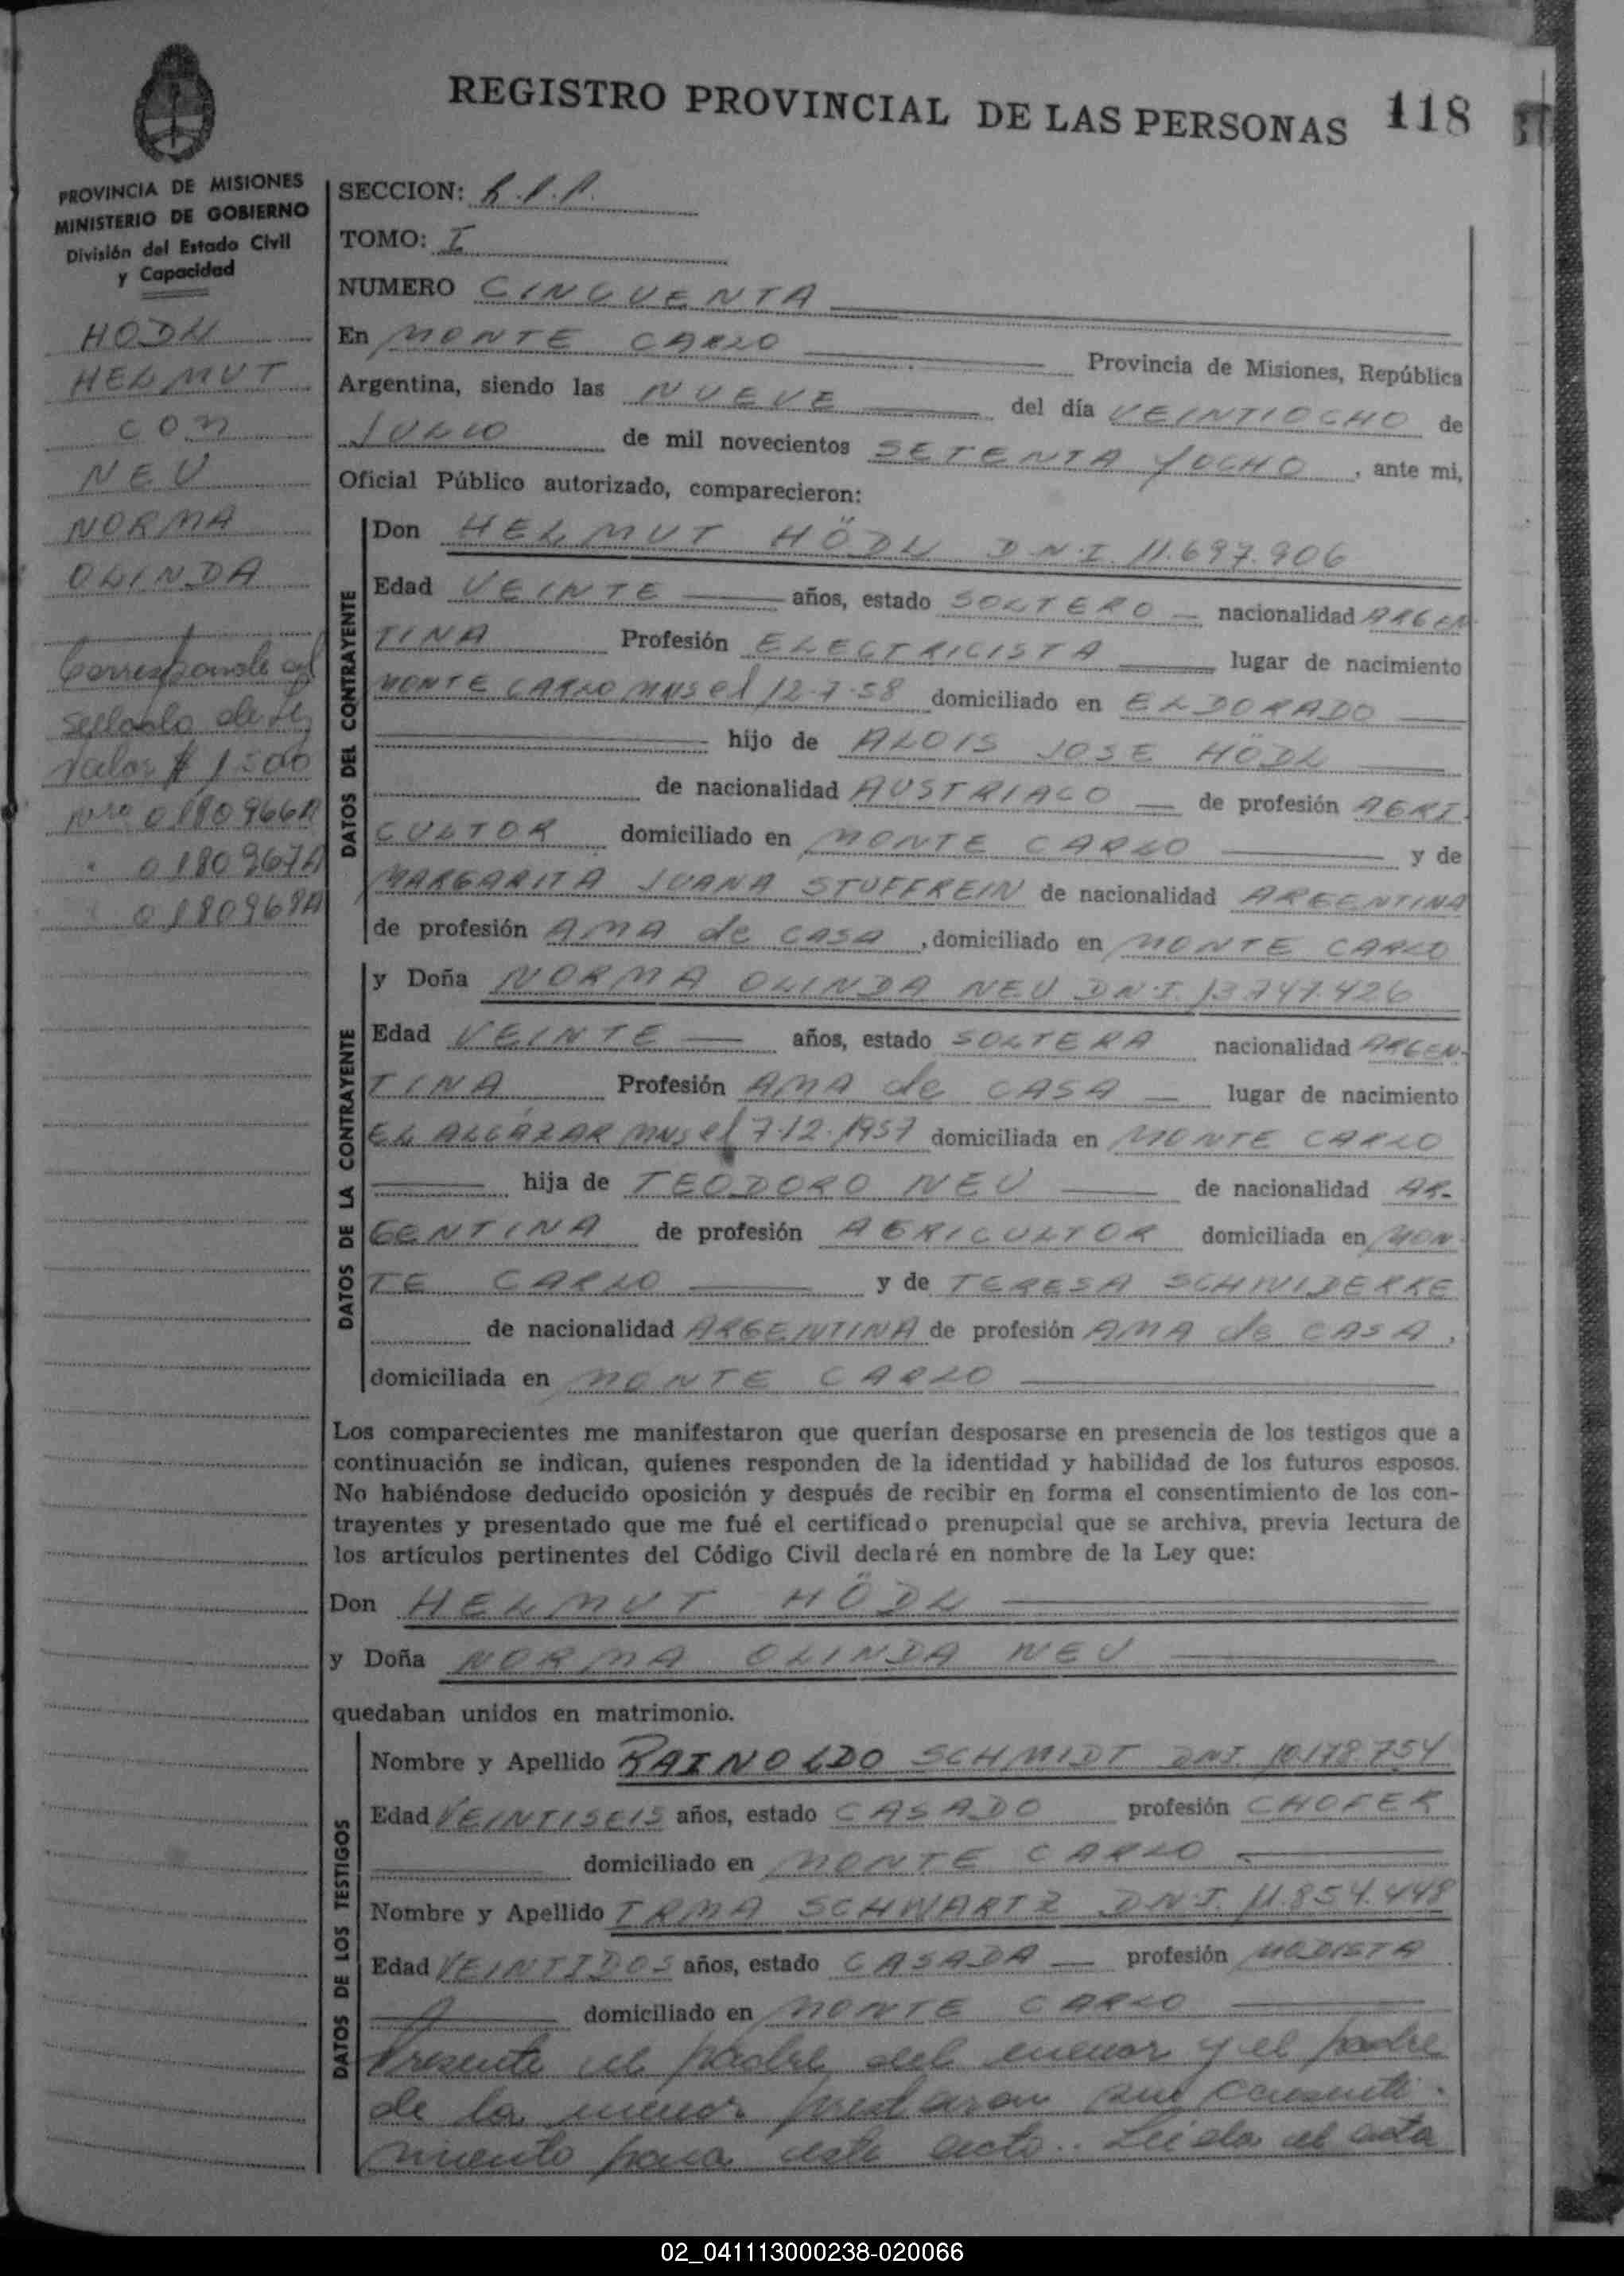 REGISTRO PROVINCIAL DE LAS PERSONAS 118
PROVINCIA DE MISIONES
MINISTERIO DE GOBIERNO
División del Estado Civil
y Capacidad
HÖDL
HELMUT
con
NEU
NORMA
OLINDA
Corresponde al
sellado de Ley
valor $ 1500
Nro 0180966A
" 0180967A
" 0180968A
SECCION: R.P.P.
TOMO: I
NUMERO CINCUENTA
En MONTE CARLO Provincia de Misiones, República
Argentina, siendo las NUEVE del día VEINTIOCHO de
JULIO de mil novecientos SETENTA Y OCHO, ante mi,
Oficial Público autorizado, comparecieron:
DATOS DEL CONTRAYENTE
Don HELMUT HÖDL D.N.I. 11.697.906
Edad VEINTE años, estado SOLTERO nacionalidad ARGEN
TINA Profesión ELECTRICISTA lugar de nacimiento
MONTE CARLO MNS el 12-7-58 domiciliado en ELDORADO
hijo de ALOIS JOSE HÖDL
de nacionalidad AUSTRIACO de profesión AGRI
CULTOR domiciliado en MONTE CARLO y de
MARGARITA JUANA STUFFREIN de nacionalidad ARGENTINA
de profesión AMA de CASA, domiciliado en MONTE CARLO
DATOS DE LA CONTRAYENTE
y Doña NORMA OLINDA NEU D.N.I. 13.747.426
Edad VEINTE años, estado SOLTERA nacionalidad ARGEN-
TINA Profesión AMA de CASA lugar de nacimiento
EL ALCÁZAR MNS el 7-12-1957 domiciliada en MONTE CARLO
hija de TEODORO NEU de nacionalidad AR-
GENTINA de profesión AGRICULTOR domiciliada en MON
TE CARLO y de TERESA
de nacionalidad ARGENTINA de profesión AMA de CASA,
domiciliada en MONTE CARLO
Los comparecientes me manifestaron que querían desposarse en presencia de los testigos que a
continuación se indican, quienes responden de la identidad y habilidad de los futuros esposos.
No habiéndose deducido oposición y después de recibir en forma el consentimiento de los con-
trayentes y presentado que me fué el certificado prenupcial que se archiva, previa lectura de
los artículos pertinentes del Código Civil declaré en nombre de la Ley que:
Don HELMUT HÖDL
y Doña NORMA OLINDA NEU
quedaban unidos en matrimonio.
DATOS DE LOS TESTIGOS
Nombre y Apellido RAINOLDO SCHMIDT DNI. 10.178.754
Edad VEINTISEIS años, estado CASADO profesión CHOFER
domiciliado en MONTE CARLO
Nombre y Apellido IRMA SCHWARTZ D.N.I. 11.854.448
Edad VEINTIDOS años, estado CASADA profesión MODISTA
domiciliado en MONTE CARLO
Presente el padre del menor y el padre
de la menor prestaron su consenti-
miento para este acto.. Leida el acta
02_041113000238-020066